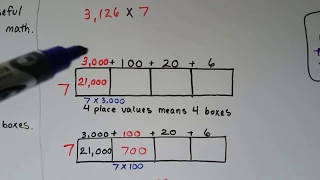 seful
math.
3,126 x 7
3,000 + 100 + 20 + 6
7 21,000
7 x 3,000
4 place values means 4 boxes
boxes.
3,000 + 100 + 20 + 6
7 21,000 700
7 x 100